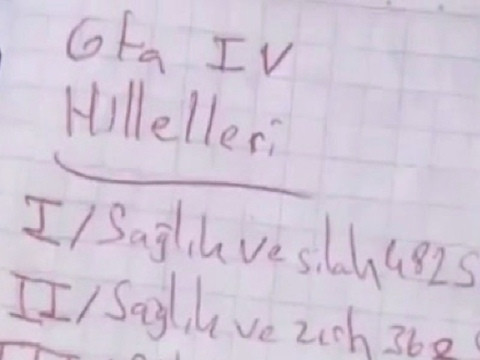 Gta IV
Hillelleri
I/Sağlık ve silah 4825
II/Sağlık ve zırh 362